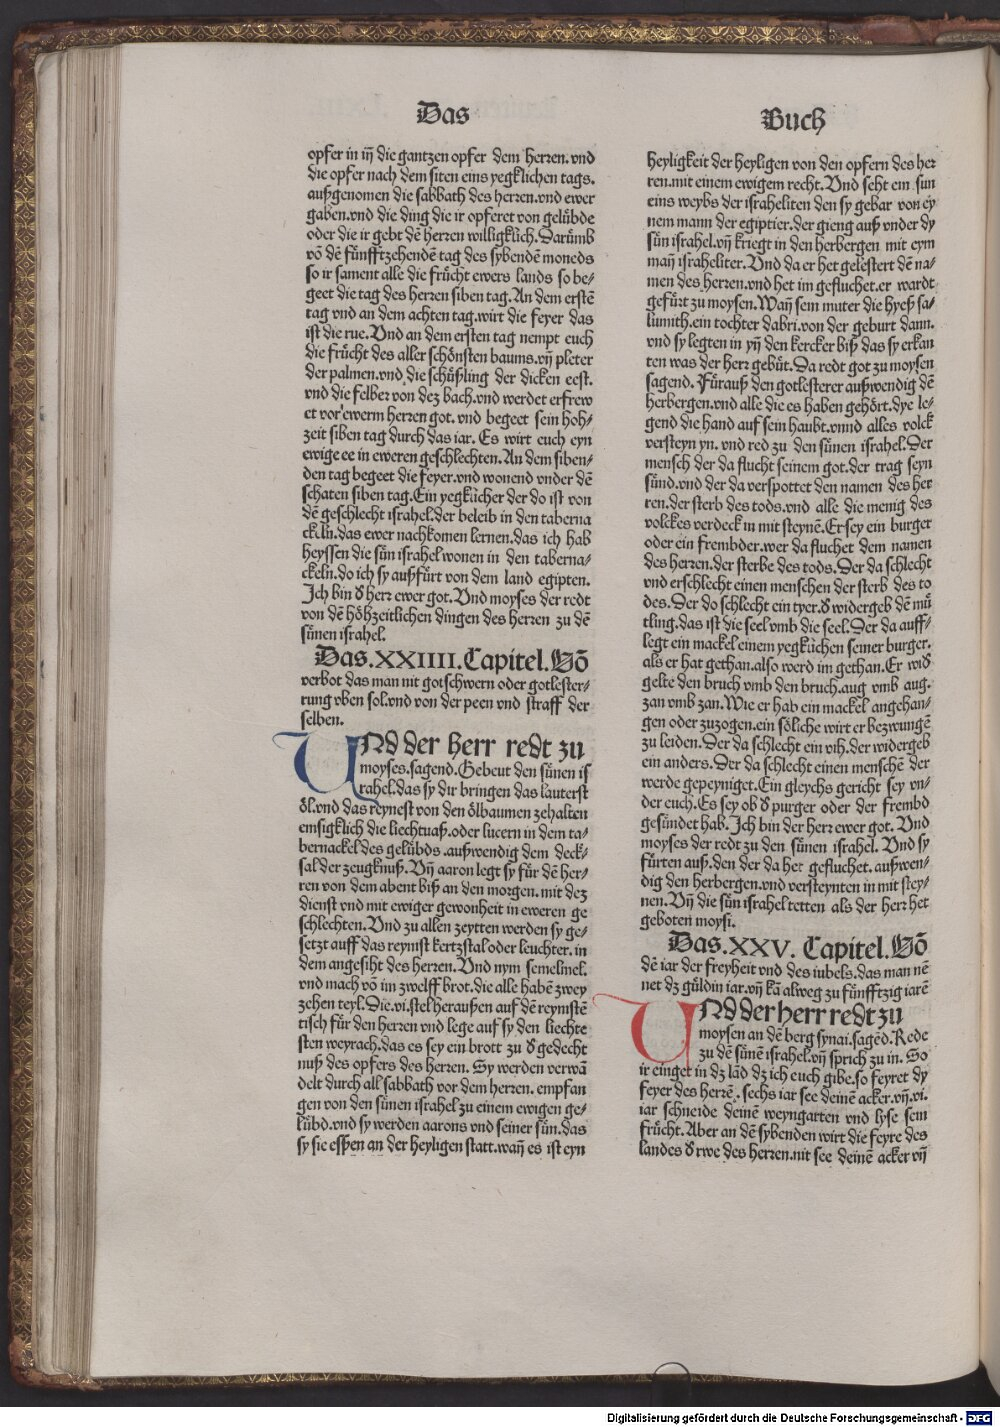 Das
Buch
opfer in iȷ̄ die gantzen opfer dem herren. vnd
die opfer nach dem siten eins yegklichen tags.
außgenomen die sabbath des herzen. vnd ewer
gaben. vnd die ding die ir opferet von gelübde
oder die ir gebt dē herzen willigklich. Darumb
vō dē fünfftzehendē tag des sybendē moneds
so ir sament alle die frücht ewers lands so be⸗
geet die tag des herzen siben tag. An dem erstē
tag vnd an dem achten tag. wirt die feyer das
ist die rue. Vnd an dem ersten tag nempt euch
die frücht des aller schönsten baums. vn̄ pleter
der palmen. vnd die schüßling der dicken eest.
vnd die felber von dez bach. vnd werdet erfrew
et vor ewerm herzen got. vnd begeet sein hoh⸗
zeit siben tag durch das iar. Es wirt euch eyn
ewige ee in eweren geschlechten. An dem siben⸗
den tag begeet die feyer. vnd wonend vnder dē
schaten siben tag. Ein yegklicher der do ist von
dē geschlecht israhel. der beleib in den taberna
ckeln. das ewer nachkomen lernen. das ich hab
heyssen die sün israhel wonen in den taberna⸗
ckeln. do ich sy außfürt von dem land egipten.
Ich bin ð herz ewer got. Vnd moyses der redt
von dē höhzeitlichen dingen des herzen zu dē
sünen israhel.
Das. XXIIII. Capitel. Vō
verbot das man nit got schwern oder gotlester⸗
rung vben sol. vnd von der peen vnd straff der
selben.
VNd der herr redt zu
moyses. sagend. Gebeut den sünen is
rahel. das sy dir bringen das lauterst
öl. vnd das reynest von den ölbaumen zehalten
emsigklich die liechtuaß. oder lucern in dem ta⸗
bernackel des gelübds. außwendig dem deck⸗
sal der zeugknuß. Vn̄ aaron legt sy für dē her⸗
ren von dem abent biß an den morgen. mit dez
dienst vnd mit ewiger gewonheit in eweren ge
schlechten. Vnd zu allen zeytten werden sy ge⸗
setzt auff das reynist kertzstal oder leuchter. in
dem angesiht des herzen. Vnd nym semelmel.
vnd mach vō im zwelff brot. die alle habē zwey
zehen teyl. Die. vi. stel heraußen auf dē reynistē
tisch für den herren vnd lege auf sy den liechte
sten weyrach. das es sey ein brott zu ð gedecht
nuß des opfers des herzen. Sy werden verwā
delt durch all sabbath vor dem herzen. empfan
gen von den sünen israhel zu einem ewigen ge⸗
lübd. vnd sy werden aarons vnd seiner sün. das
sy sie essen an der heyligen statt. wan̄ es ist eyn
heyligkeit der heyligen von den opfern des her
ren. mit einem ewigem recht. Vnd seht ein sun
eins weybs der israheliten den sy gebar von ey
nem mann der egiptier. der gieng auß vnder dy
sün israhel. vn̄ kriegt in den herbergen mit eym
man̄ israheliter. Vnd da er het gelestert dē na⸗
men des herzen. vnd het im gefluchet. er wardt
gefürt zu moysen. Wan̄ sein muter die hyeß sa⸗
lumith. ein tochter dabri. von der geburt dann.
vnd sy legten in yn̄ den kercker biß das sy erkan
ten was der herz gebüt. Da redt got zu moysen
sagend. Füraus den gotlesterer außwendig dē
herbergen. vnd alle die es haben gehört. dye le⸗
gend die hand auf sein haubt. vnnd alles volck
versteyn yn. vnd red zu den sünen israhel. Der
mensch der da flucht seinem got. der trag seyn
sünd. vnd der da verspottet den namen des her
ren. der sterb des tods. vnd alle die menig des
volckes verdeck in mit steynē. Er sey ein burger
oder ein frembder. wer da fluchet dem namen
des herzen. der sterbe des tods. Der da schlecht
vnd erschlecht einen menschen der sterb des to
des. Der do schlecht ein tyer. ð widergeb dē mü
tling. das ist die seel vmb die seel. Der da auff⸗
legt ein mackel einem yegklichen seiner burger.
als er hat gethan. also werd im gethan. Er wið
gelte den bruch vmb den bruch. aug vmb aug.
zan vmb zan. Wie er hab ein mackel angehan⸗
gen oder zuzogen. ein söliche wirt er bezwungē
zu leiden. Der da schlecht ein vih. der widergeb
ein anders. Der da schlecht einen menschē der
werde gepeyniget. Ein gleychs gericht sey vn⸗
der euch. Es sey ob ð purger oder der frembd
gesündet hab. Ich bin der herz ewer got. Vnd
moyses der redt zu den sünen israhel. Vnd sy
fürten auß. den der da het gefluchet. außwen⸗
dig den herbergen. vnd versteynten in mit stey⸗
nen. Vn̄ die sün israhel tetten als der herz het
geboten moysi.
Das. XXV. Capitel. Vō
dē iar der freyheit vnd des iubels. das man nē
net dz güldin iar. vn̄ kā alweg zu fünfftzig iarē
VNd der herr redt zu
moysen an dē berg synai. sagēd. Rede
zu dē sünē israhel. vn̄ sprich zu in. So
ir einget in dz lād dz ich euch gibe. so feyret dy
feyer des herzē. sechs iar see deinē acker. vn̄. vi.
iar schneide deinē weyngarten vnd lyse sein
frücht. Aber an dē sybenden wirt die feyre des
landes ð rwe des herzen. nit see deinē acker vn̄
Digitalisierung gefördert durch die Deutsche Forschungsgemeinschaft - DFG